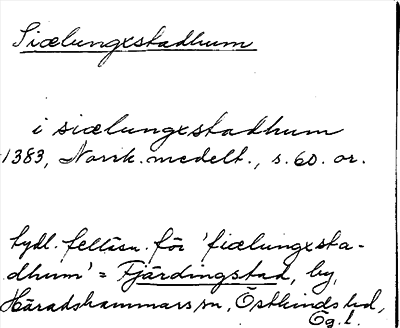 Siælungxstadhum
i siælungxstadhum
1383, Norrk. medelt., s. 60. or.
tydl. felläsn. för 'fiælungxsta-
dhum' = Fjärdingstad, by,
Häradshammars sn, Östkinds hd,
Ög. l.